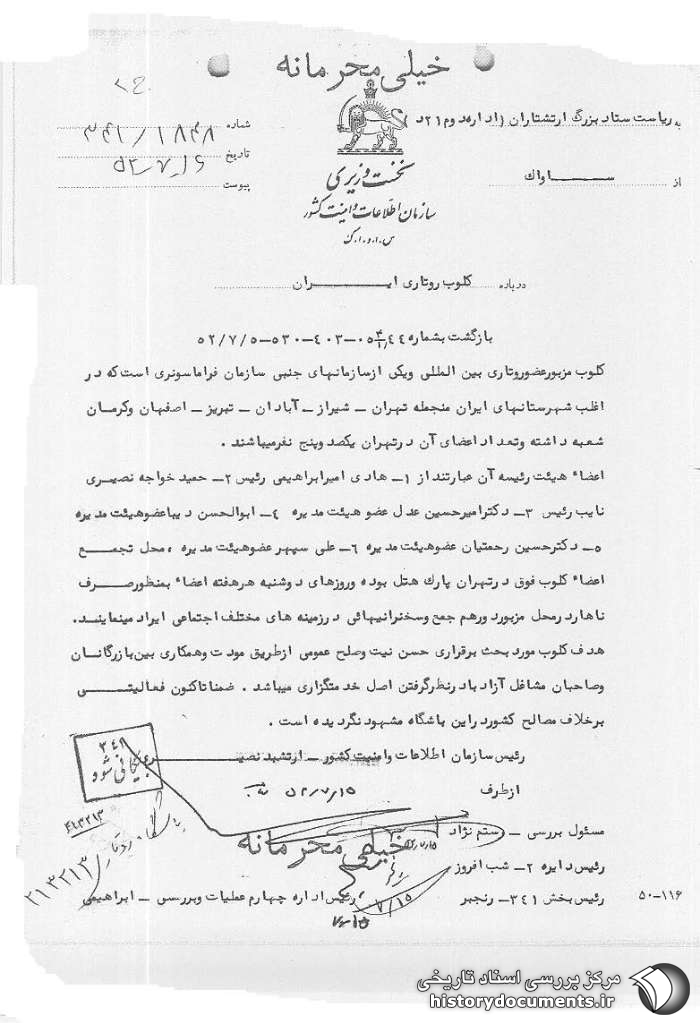 خیلی محرمانه
به ریاست ستاد بزرگ ارتشتاران (اداره دوم ۲۱د
شماره ۳۴۱/۱۸۴۸
تاریخ
پیوست
از ســـــــاواک
نخست وزیری
سازمان اطلاعات و امنیت کشور
س.ا.و.ا.ک
درباره کلوب روتاری ایـــــــران
بازگشت بشماره ۵۲/۷/۵-۵۳۰-۴۰۳-۰۵
کلوب مزبور عضو روتاری بین المللی ویکی از سازمانهای جنبی سازمان فراماسونری است که در
اغلب شهرستانهای ایران منجمله تهران – شیراز – آبادان – تبریز – اصفهان وکرمان
شعبه داشته وتعداد اعضای آن درتهران یکصد وپنج نفر میباشند .
اعضاء هیئت رئیسه آن عبارتند از ۱- هادی امیرابراهیمی رئیس ۲- حمید خواجه نصیری
نایب رئیس ۳- دکتر امیرحسین عدل عضو هیئت مدیره ۴- ابوالحسن دیبا عضوهیئت مدیره
۵- دکترحسین رحمتیان عضوهیئت مدیره ۶- علی سپهر عضوهیئت مدیره ، محل تجمع
اعضاء کلوب فوق درتهران پارک هتل بوده وروزهای دوشنبه هرهفته اعضاء بمنظور صرف
ناهار در محل مزبور دورهم جمع وسخنرانیهائی درزمینه های مختلف اجتماعی ایراد مینمایند.
هدف کلوب مورد بحث برقراری حسن نیت وصلح عمومی ازطریق مودت وهمکاری بین بازرگانان
وصاحبان مشاغل آزاد بادرنظرگرفتن اصل خدمتگزاری میباشد . ضمنا تاکنون فعالیتـــی
برخلاف مصالح کشور در این باشگاه مشهود نگردیده است .
رئیس سازمان اطلاعات وامنیت کشور – ارتشبد نصیـــری
ازطرف ۵۲/۷/۱۵
۳۴۸
بایگانی شود
مسئول بررسی – رستم نژاد
خیلی محرمانه
رئیس دایره ۲- شب افروز
۲۱۳۲۱۳
رئیس بخش ۳۴۱- رنجبر ۷/۱۵ رئیس اداره چهارم عملیات وبررسی – ابراهیمی
۵۰-۱۱۶
مرکز بررسی اسناد تاریخی
historydocuments.ir